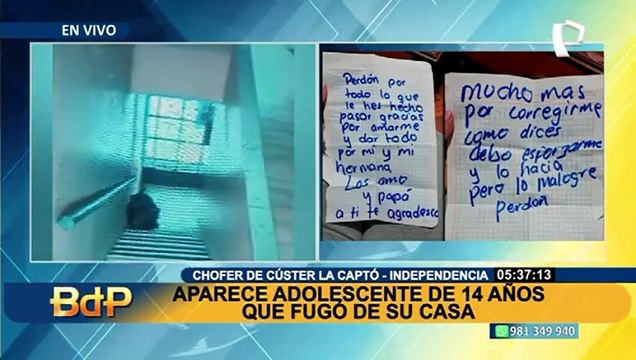 EN VIVO
Perdón por
todo lo que
le hes hecho
pasar gracias
por amarme y
y dar todo
por mi y mi
hermana
Los amo
y papá
a ti te agradesco
mucho mas
por corregirme
como dices
debo esforzarme
y lo hacia
pero lo malogre
perdón
CHOFER DE CÚSTER LA CAPTÓ - INDEPENDENCIA
05:37:13
BdP
APARECE ADOLESCENTE DE 14 AÑOS
QUE FUGÓ DE SU CASA
981 349 940